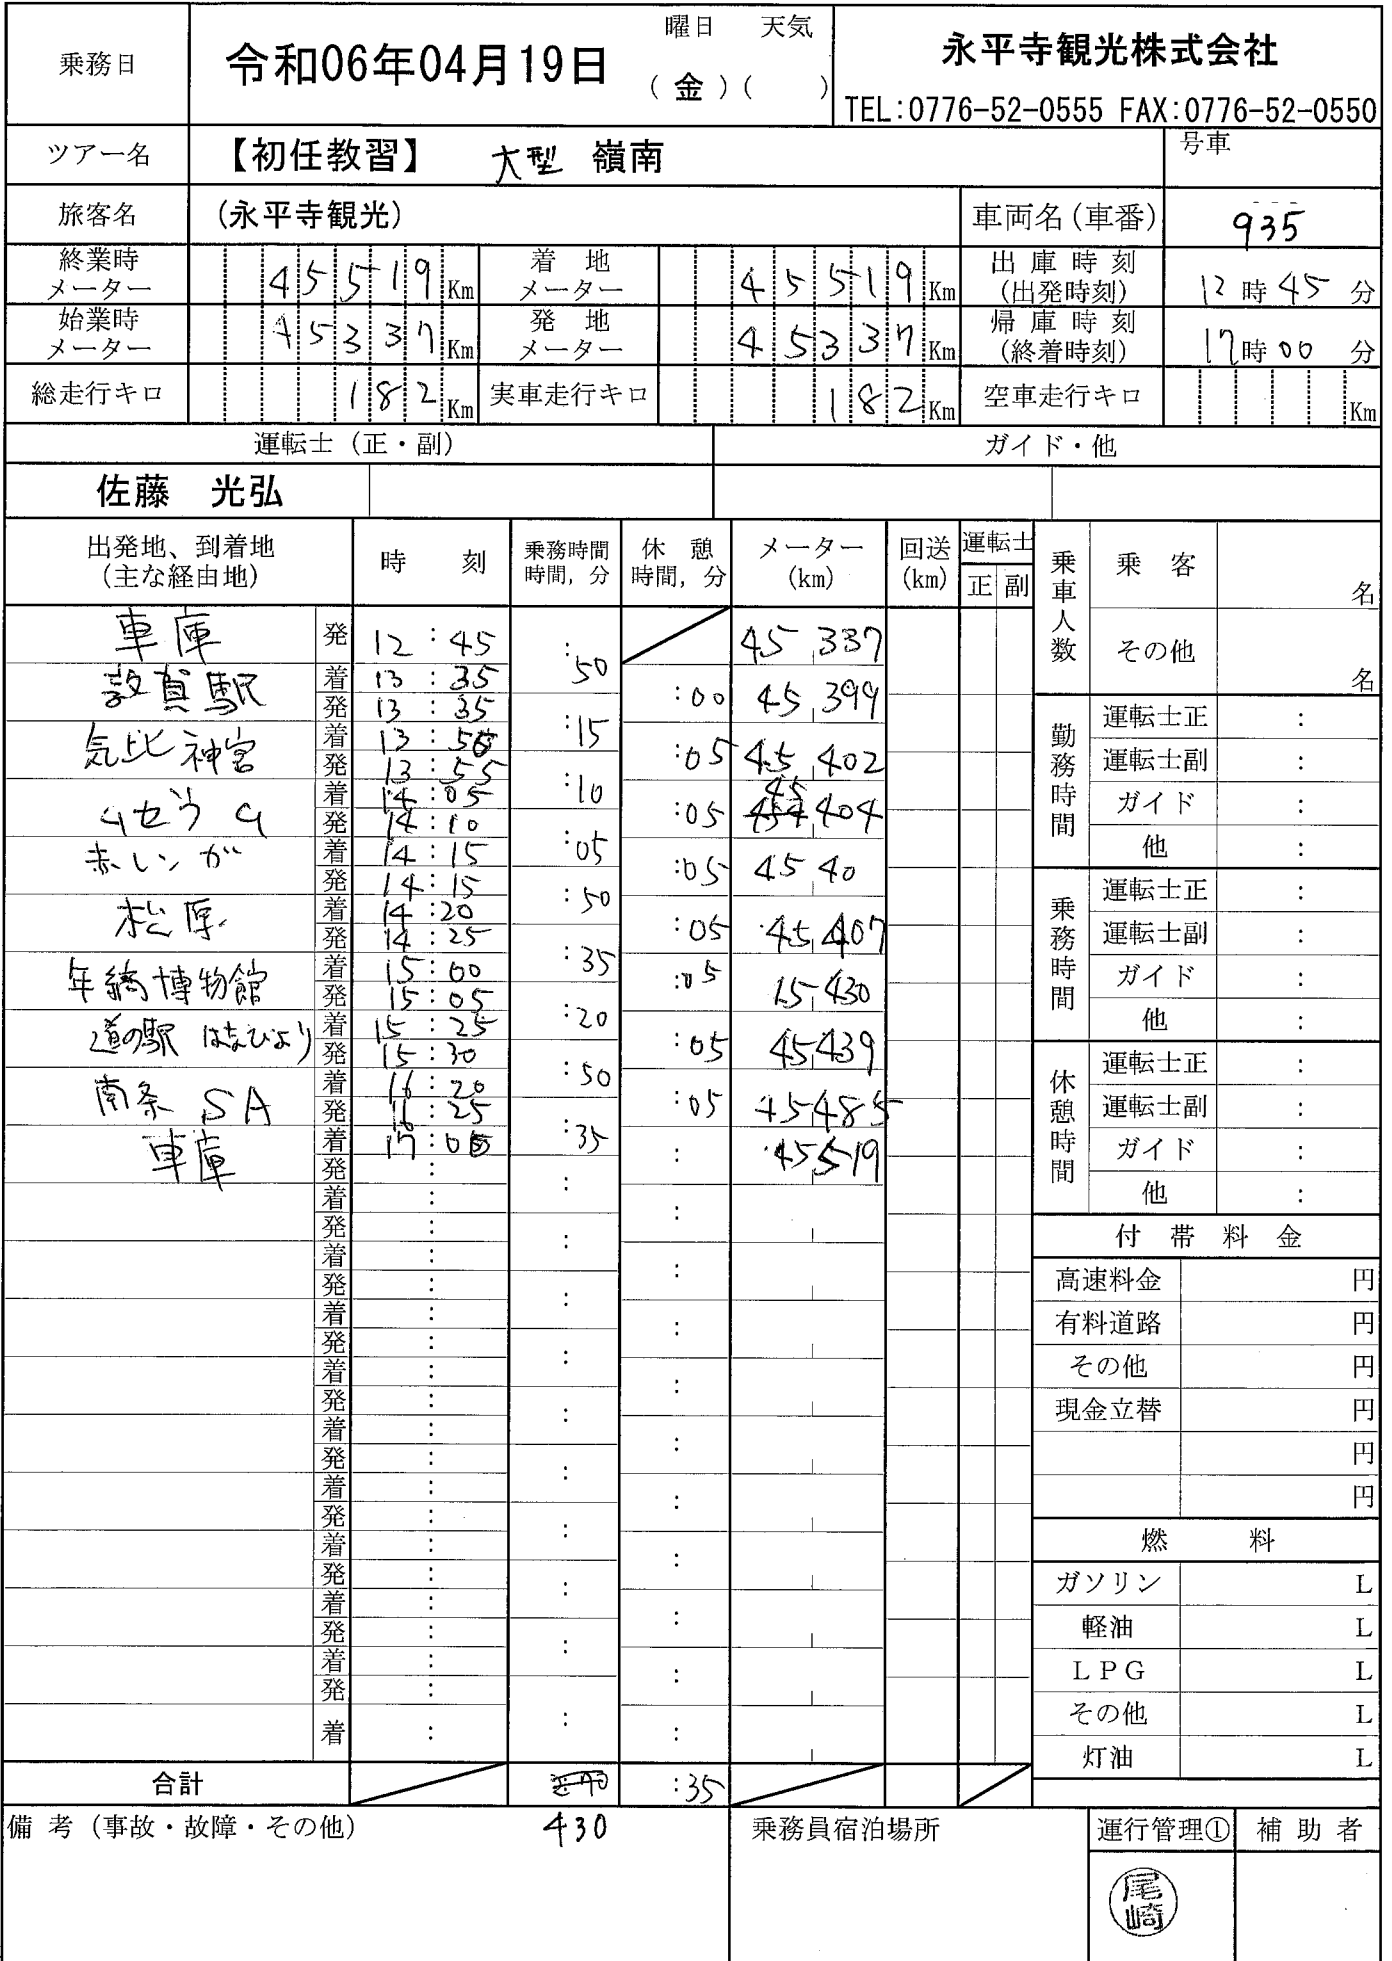 乗務日 令和06年04月19日 曜日 天気
(金) ( )
永平寺観光株式会社
TEL:0776-52-0555 FAX:0776-52-0550
ツアー名 【初任教習】 大型 嶺南 号車
旅客名 (永平寺観光) 車両名(車番) 935
終業時メーター 45519 Km 着地メーター 45519 Km 出庫時刻(出発時刻) 12時45分
始業時メーター 45337 Km 発地メーター 45337 Km 帰庫時刻(終着時刻) 17時00分
総走行キロ 182 Km 実車走行キロ 182 Km 空車走行キロ Km
運転士(正・副) ガイド・他
佐藤 光弘
出発地、到着地(主な経由地) 時刻 乗務時間 時間,分 休憩 時間,分 メーター(km) 回送(km) 運転士 正 副
車庫 発 12:45 45,337
:50
敦賀駅 着 13:35 発 13:35 :00 45,399
:15
気比神宮 着 13:50 発 13:55 :05 45,402
:10
着 14:05 発 14:10 :05 45,404
:05
赤レンガ 着 14:15 発 14:15 :05 45 40
:50
松原 着 14:20 発 14:25 :05 45,407
:35
年縞博物館 着 15:00 発 15:05 :05 45,430
:20
道の駅 はまびより 着 15:25 発 15:30 :05 45,439
:50
南条SA 着 16:20 発 16:25 :05 45,485
:35
車庫 着 17:00 発 : : 45,519
合計 :35
430
乗車人数 乗客 名
その他 名
勤務時間 運転士正 :
運転士副 :
ガイド :
他 :
乗務時間 運転士正 :
運転士副 :
ガイド :
他 :
休憩時間 運転士正 :
運転士副 :
ガイド :
他 :
付帯料金
高速料金 円
有料道路 円
その他 円
現金立替 円
円
円
燃料
ガソリン L
軽油 L
LPG L
その他 L
灯油 L
備考(事故・故障・その他) 乗務員宿泊場所 運行管理① 補助者
尾崎